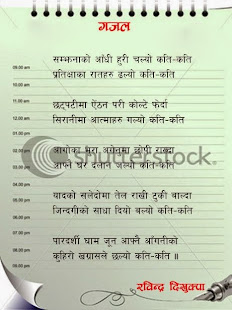 गजल
सम्झनाको आँधी हुरी चल्यो कति-कति
प्रतिक्षाका रातहरु ढल्यो कति-कति
छट्पटीमा ऐंठन परी कोल्टे फेर्दा
सिरानीमा आत्माहरु गल्यो कति-कति
आगोका भुग्रा अगेनामा छोपी राख्दा
आफ्नै घर दलान जल्यो कति-कति
यादको सलेदोमा तेल राखी टुकी वाल्दा
जिन्दगीको साधा दियो बल्यो कति-कति
पारदर्शी घाम जून आफ्नै आँगनीको
कुहिरो खग्रासले छल्यो कति-कति ॥
रविन्द्र दिखुक्पा
09.00 am
10.00 am
11.00 am
12.00 am
01.00 pm
02.00 pm
03.00 pm
04.00 pm
05.00 pm
06.00 pm
07.00 pm
08.00 pm
shutterstock